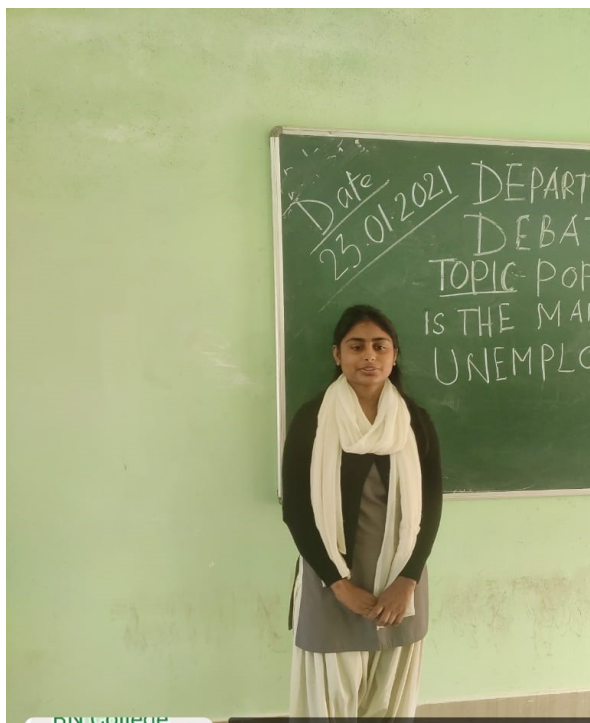 Date
23.01.2021
DEPART
DEBAT
TOPIC-POP
IS THE MAI
UNEMPLO
RN College